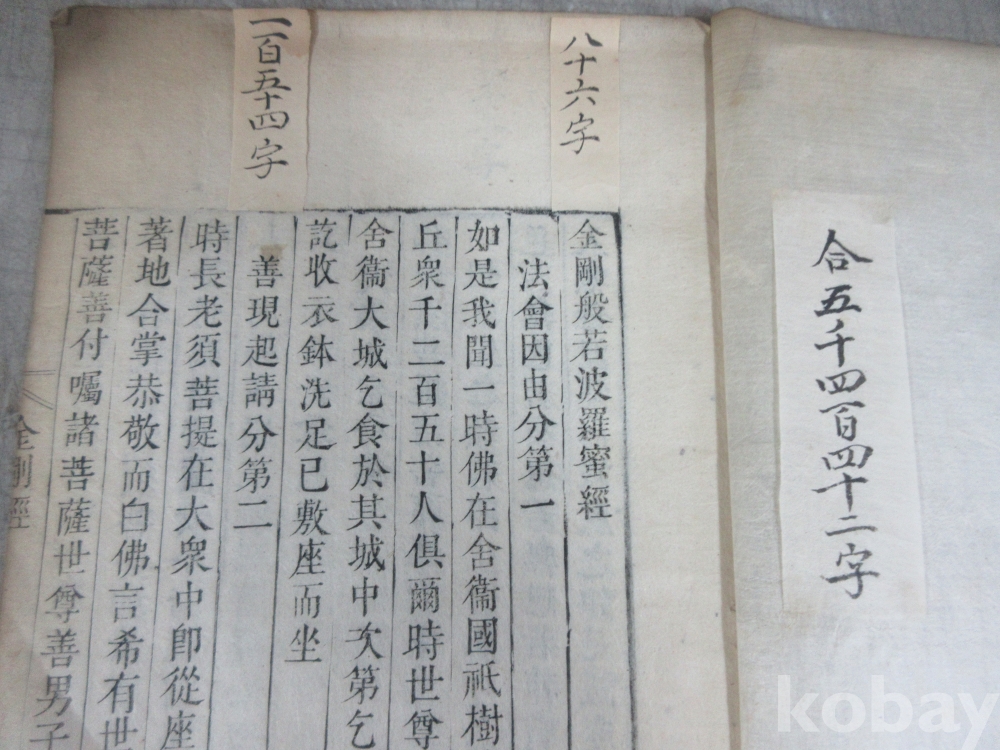 合五千四百四十二字
八十六字
金剛般若波羅蜜經
法會因由分第一
如是我聞一時佛在舍衞國祇樹
丘衆千二百五十人俱爾時世尊
舍衞大城乞食於其城中次第乞
訖收衣鉢洗足已敷座而坐
一百五十四字
善現起請分第二
時長老須菩提在大衆中卽從座
著地合掌恭敬而白佛言希有世
菩薩善付囑諸菩薩世尊善男子
金剛經
kobay